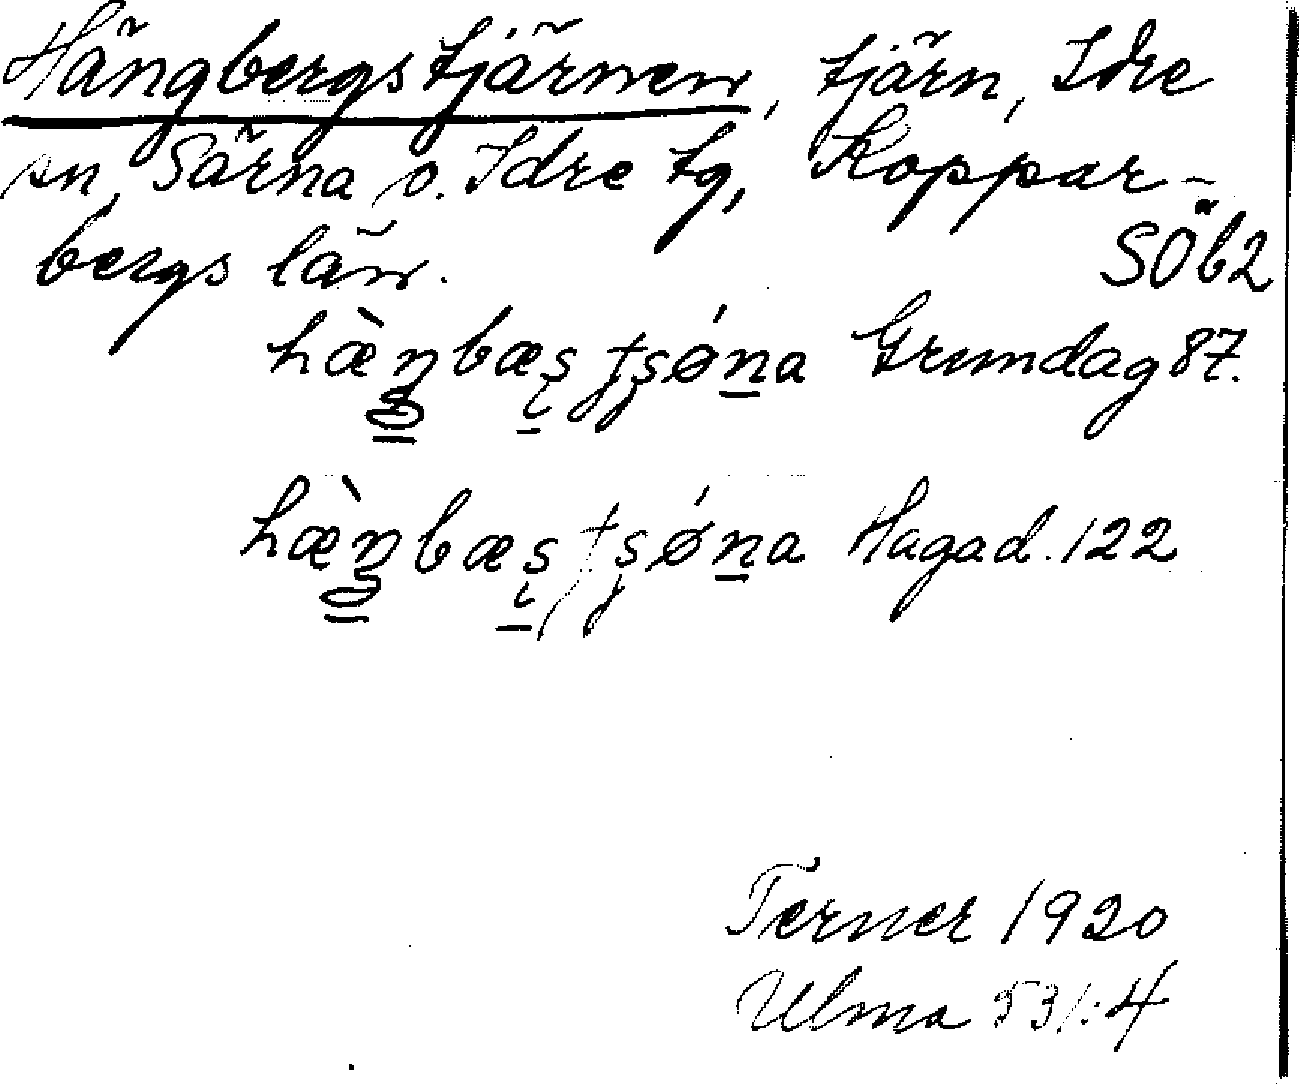 Hängbergstjärnen, tjärn, Idre
sn, Särna o. Idre tg, Koppar-
bergs län.
SÖb2
hæ̀ŋbæʂ tʂǿna Grundag 87.
hæ̀ŋbæʂ tʂǿna Hagad. 122
Terner 1920
Ulma 531:4